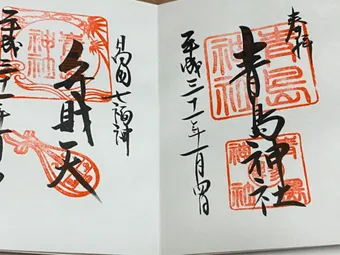 奉拝
青島神社
青島神社
青島神社
平成三十一年一月四日
昌図七福神
弁財天
青島神社
平成三十一年一月